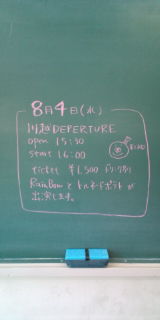 8月4日(水)
川越DEPERTURE
open 15:30
start 16:00
ticket ¥1,500
RainBowとトルネードポテトが
出演します。